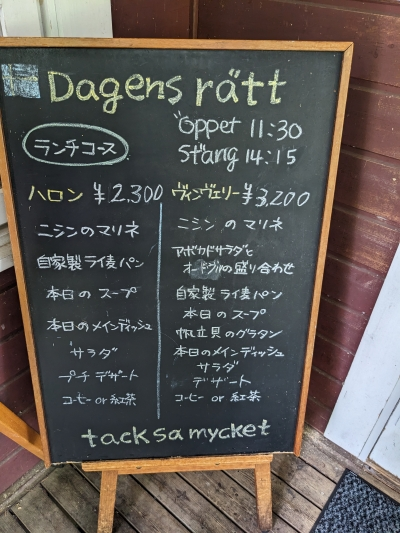 Dagens rätt
Öppet 11:30
Stäng 14:15
ランチコース
ハロン ¥2,300
ニシンのマリネ
自家製ライ麦パン
本日のスープ
本日のメインディッシュ
サラダ
プチデザート
コーヒー or 紅茶
ヴィンヴェリー ¥3,200
ニシンのマリネ
アボカドサラダと
オードブルの盛り合わせ
自家製ライ麦パン
本日のスープ
帆立貝のグラタン
本日のメインディッシュ
サラダ
デザート
コーヒー or 紅茶
tack sa mycket